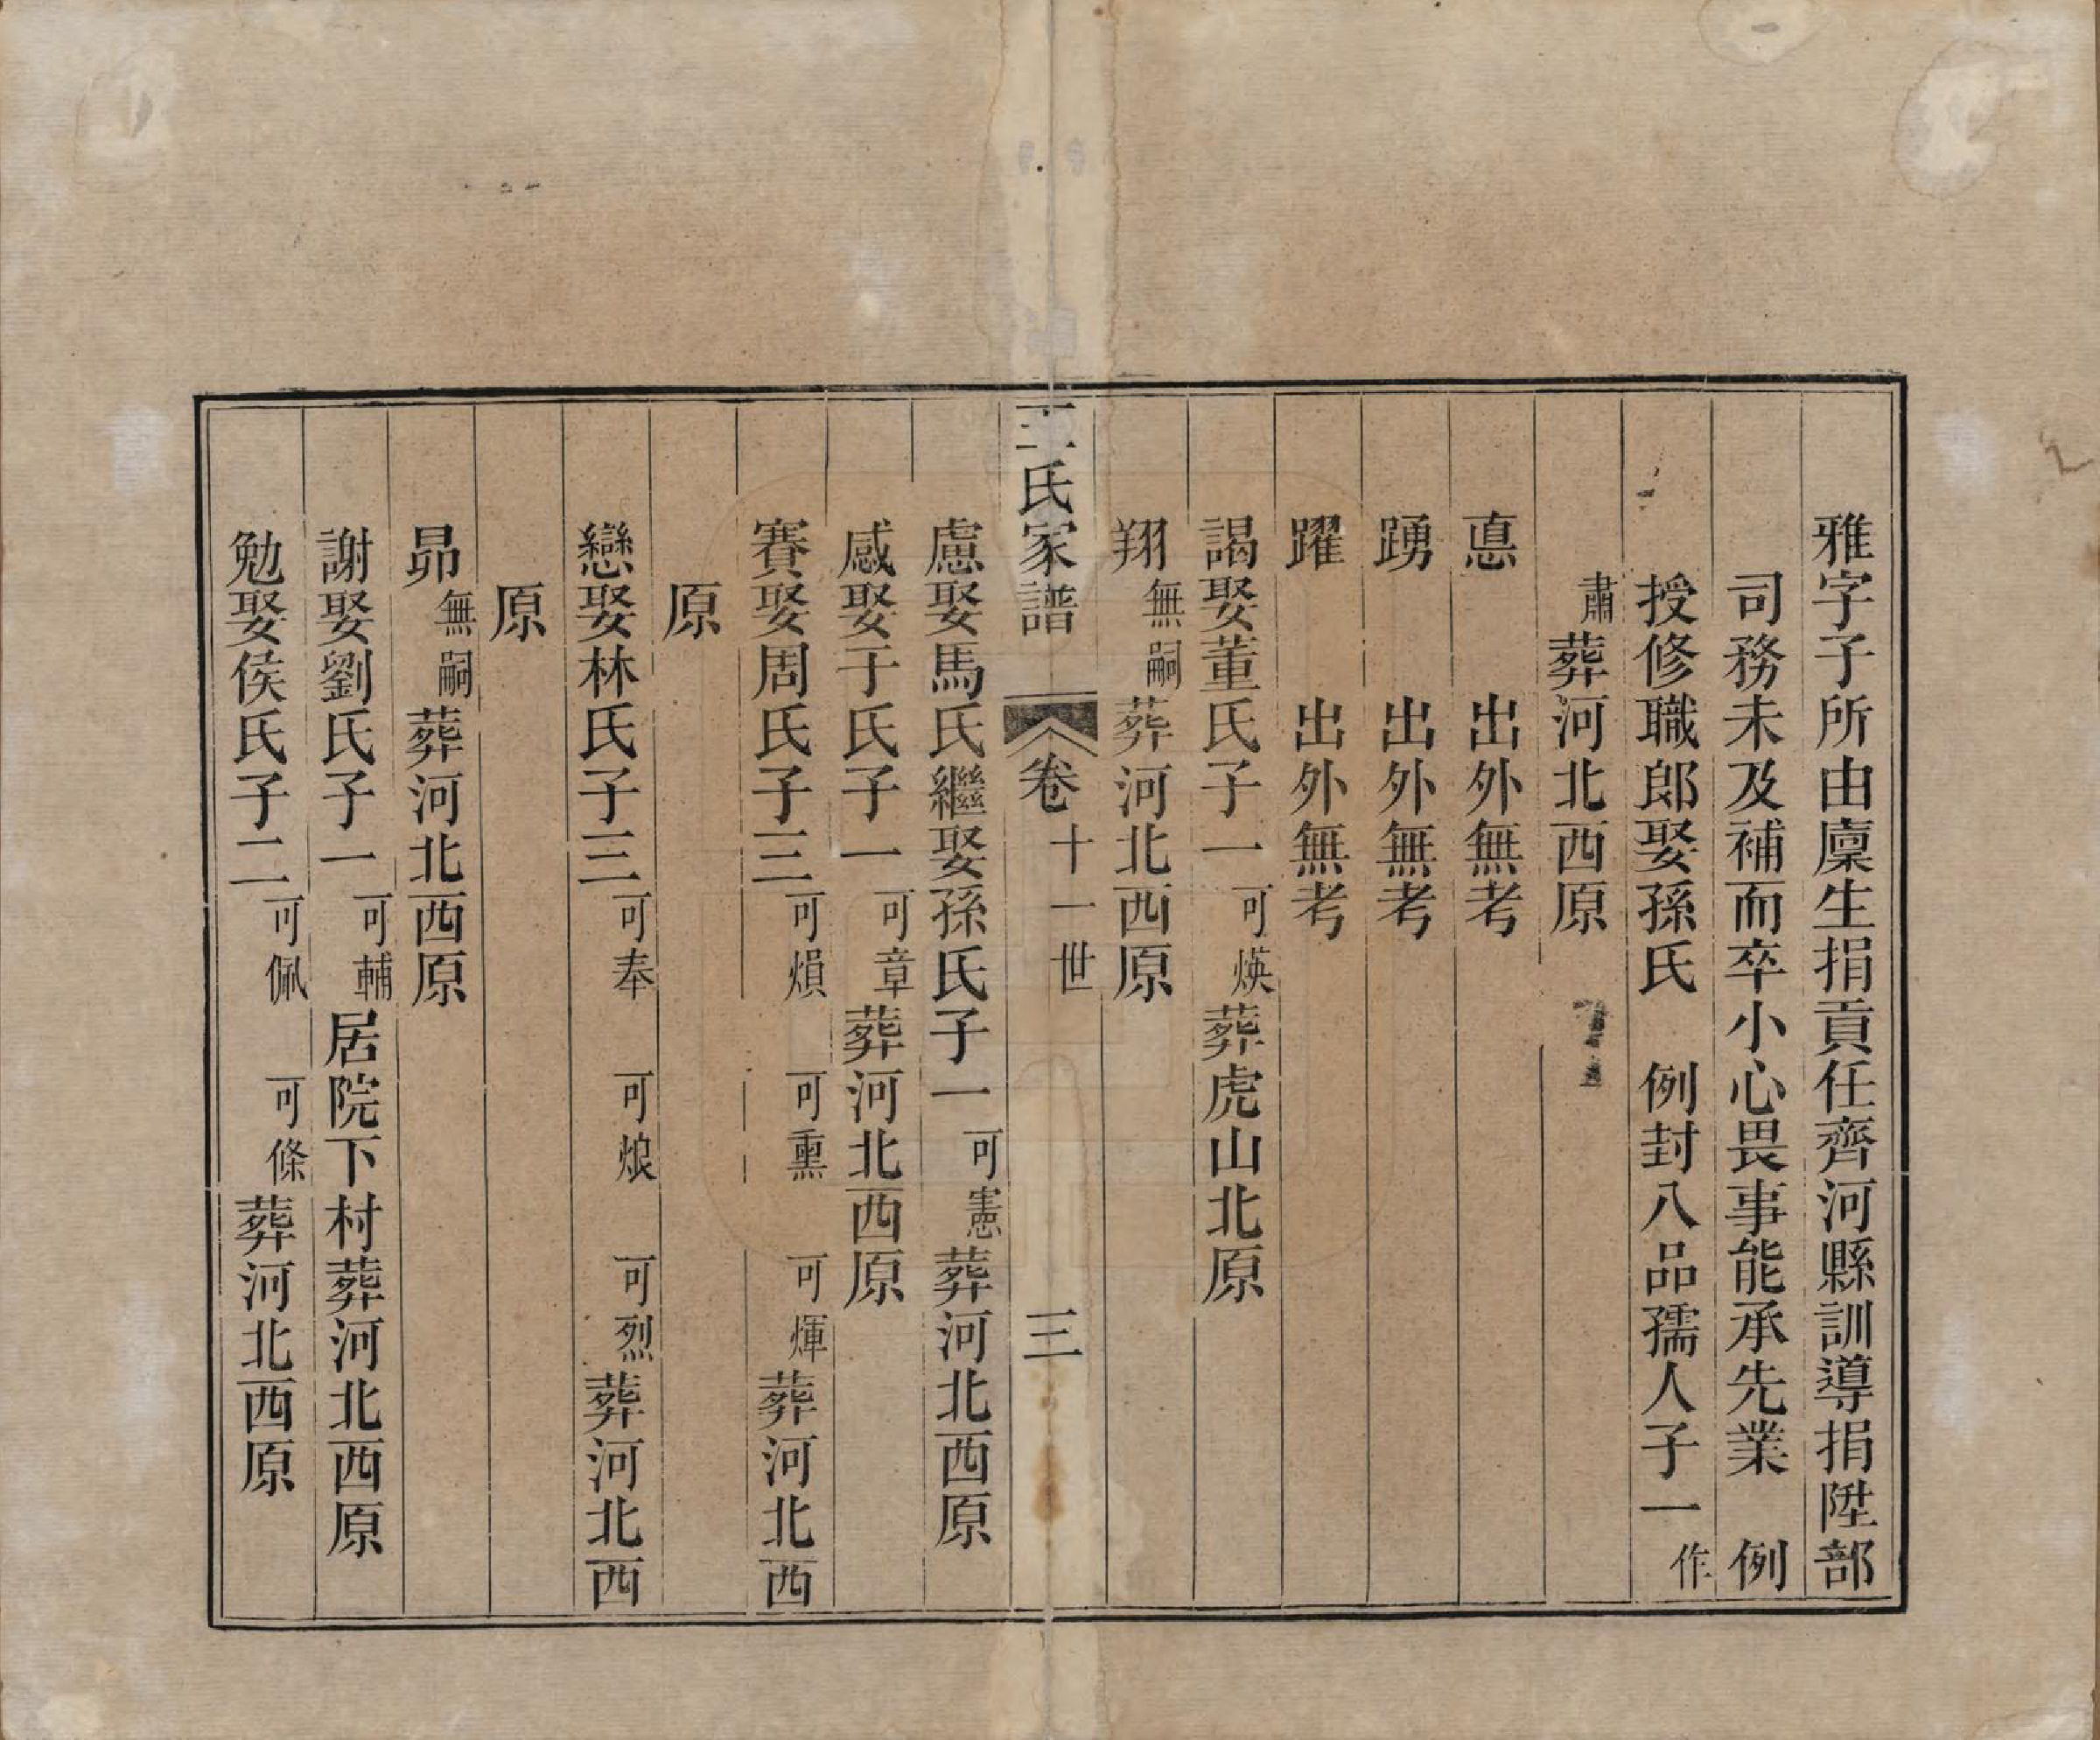 雅字子所由廩生捐貢任齊河縣訓導捐陞部
司務未及補而卒小心畏事能承先業　例
授修職郎娶孫氏　例封八品孺人子一作
肅葬河北西原
悳　　出外無考
踴　　出外無考
躍　　出外無考
謁娶董氏子一可煐葬虎山北原
翔無嗣葬河北西原
王氏家譜　卷十一世　三
慮娶馬氏繼娶孫氏子一可憲葬河北西原
感娶于氏子一可章葬河北西原
賽娶周氏子三可熉　可熏　可煇葬河北西
原
戀娶林氏子三可奉　可烺　可烈葬河北西
原
昴無嗣葬河北西原
謝娶劉氏子一可輔居院下村葬河北西原
勉娶侯氏子二可佩　可條葬河北西原